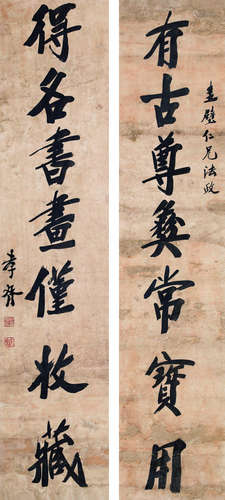 有古尊彝常寶用
圭璧仁兄法政
得各書畫僅收藏
孝胥